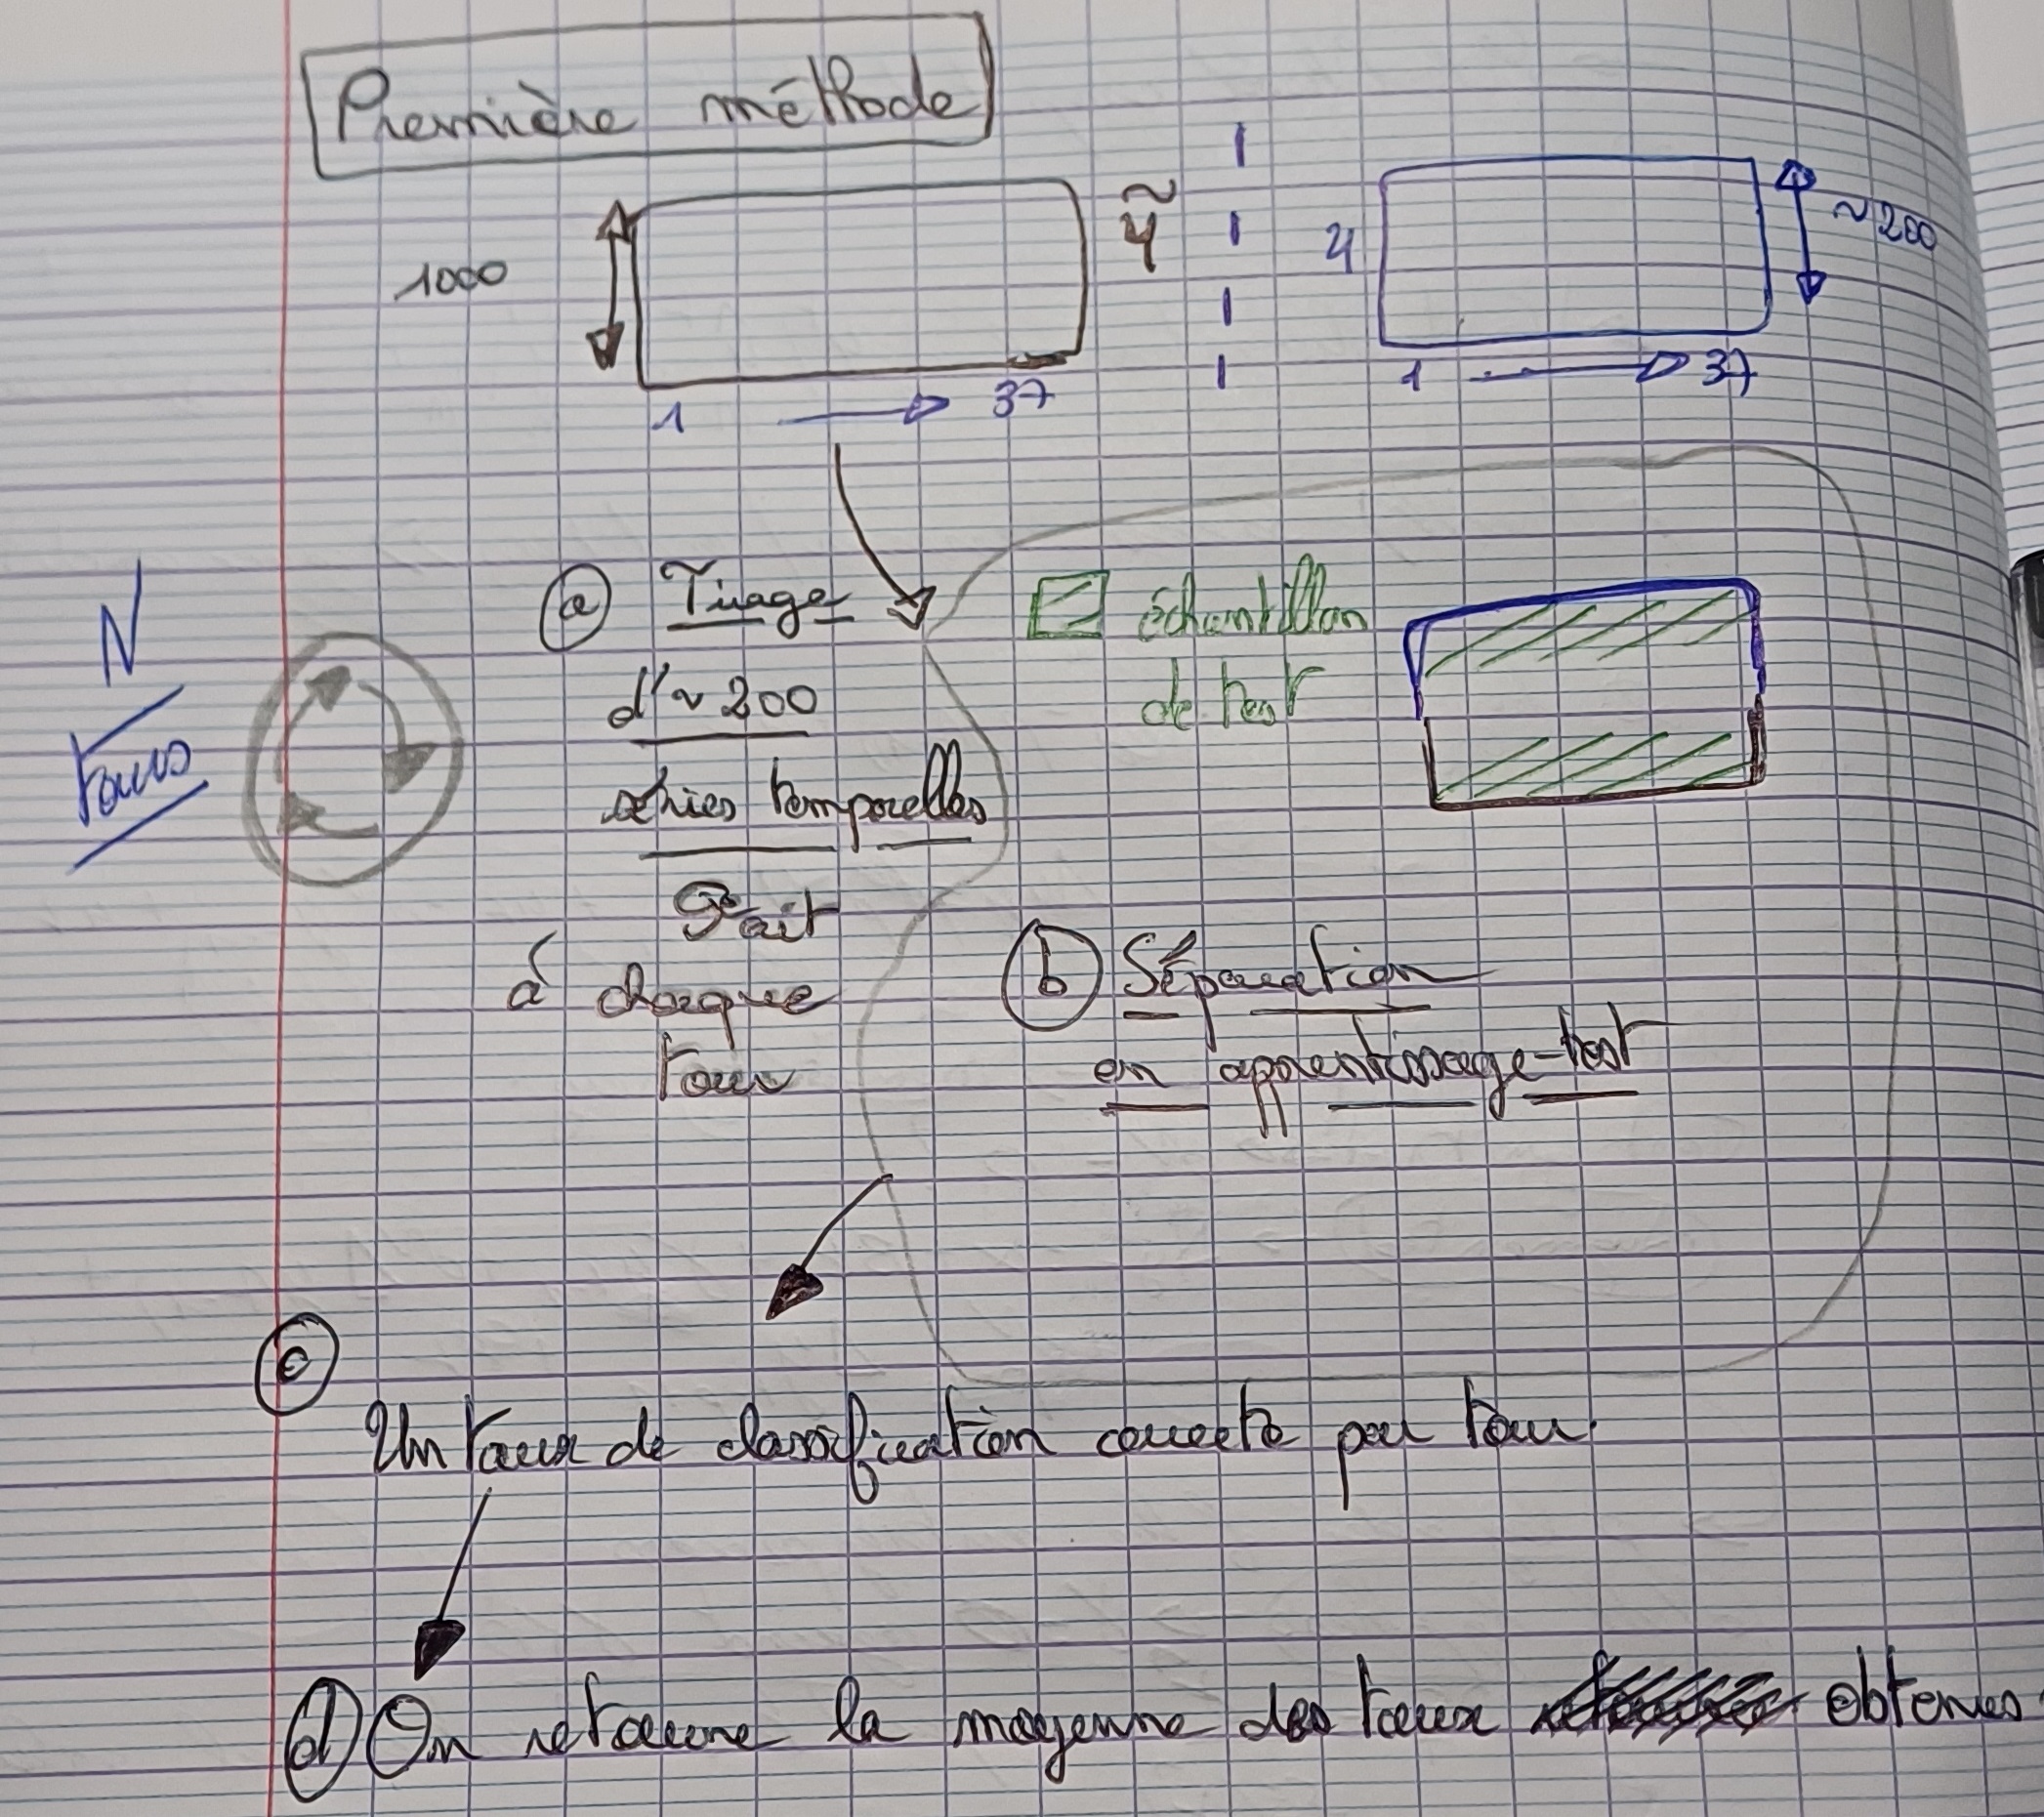 Première méthode
1000
ỹ
y
~ 200
1 → 37
1 → 37
N
tours
(a) Tirage
d'~ 200
séries temporelles
Fait
à chaque
tour
échantillon
de test
(b) Séparation
en apprentissage-test
(c)
Un taux de classification correcte par tour.
(d) On retourne la moyenne des taux obtenus